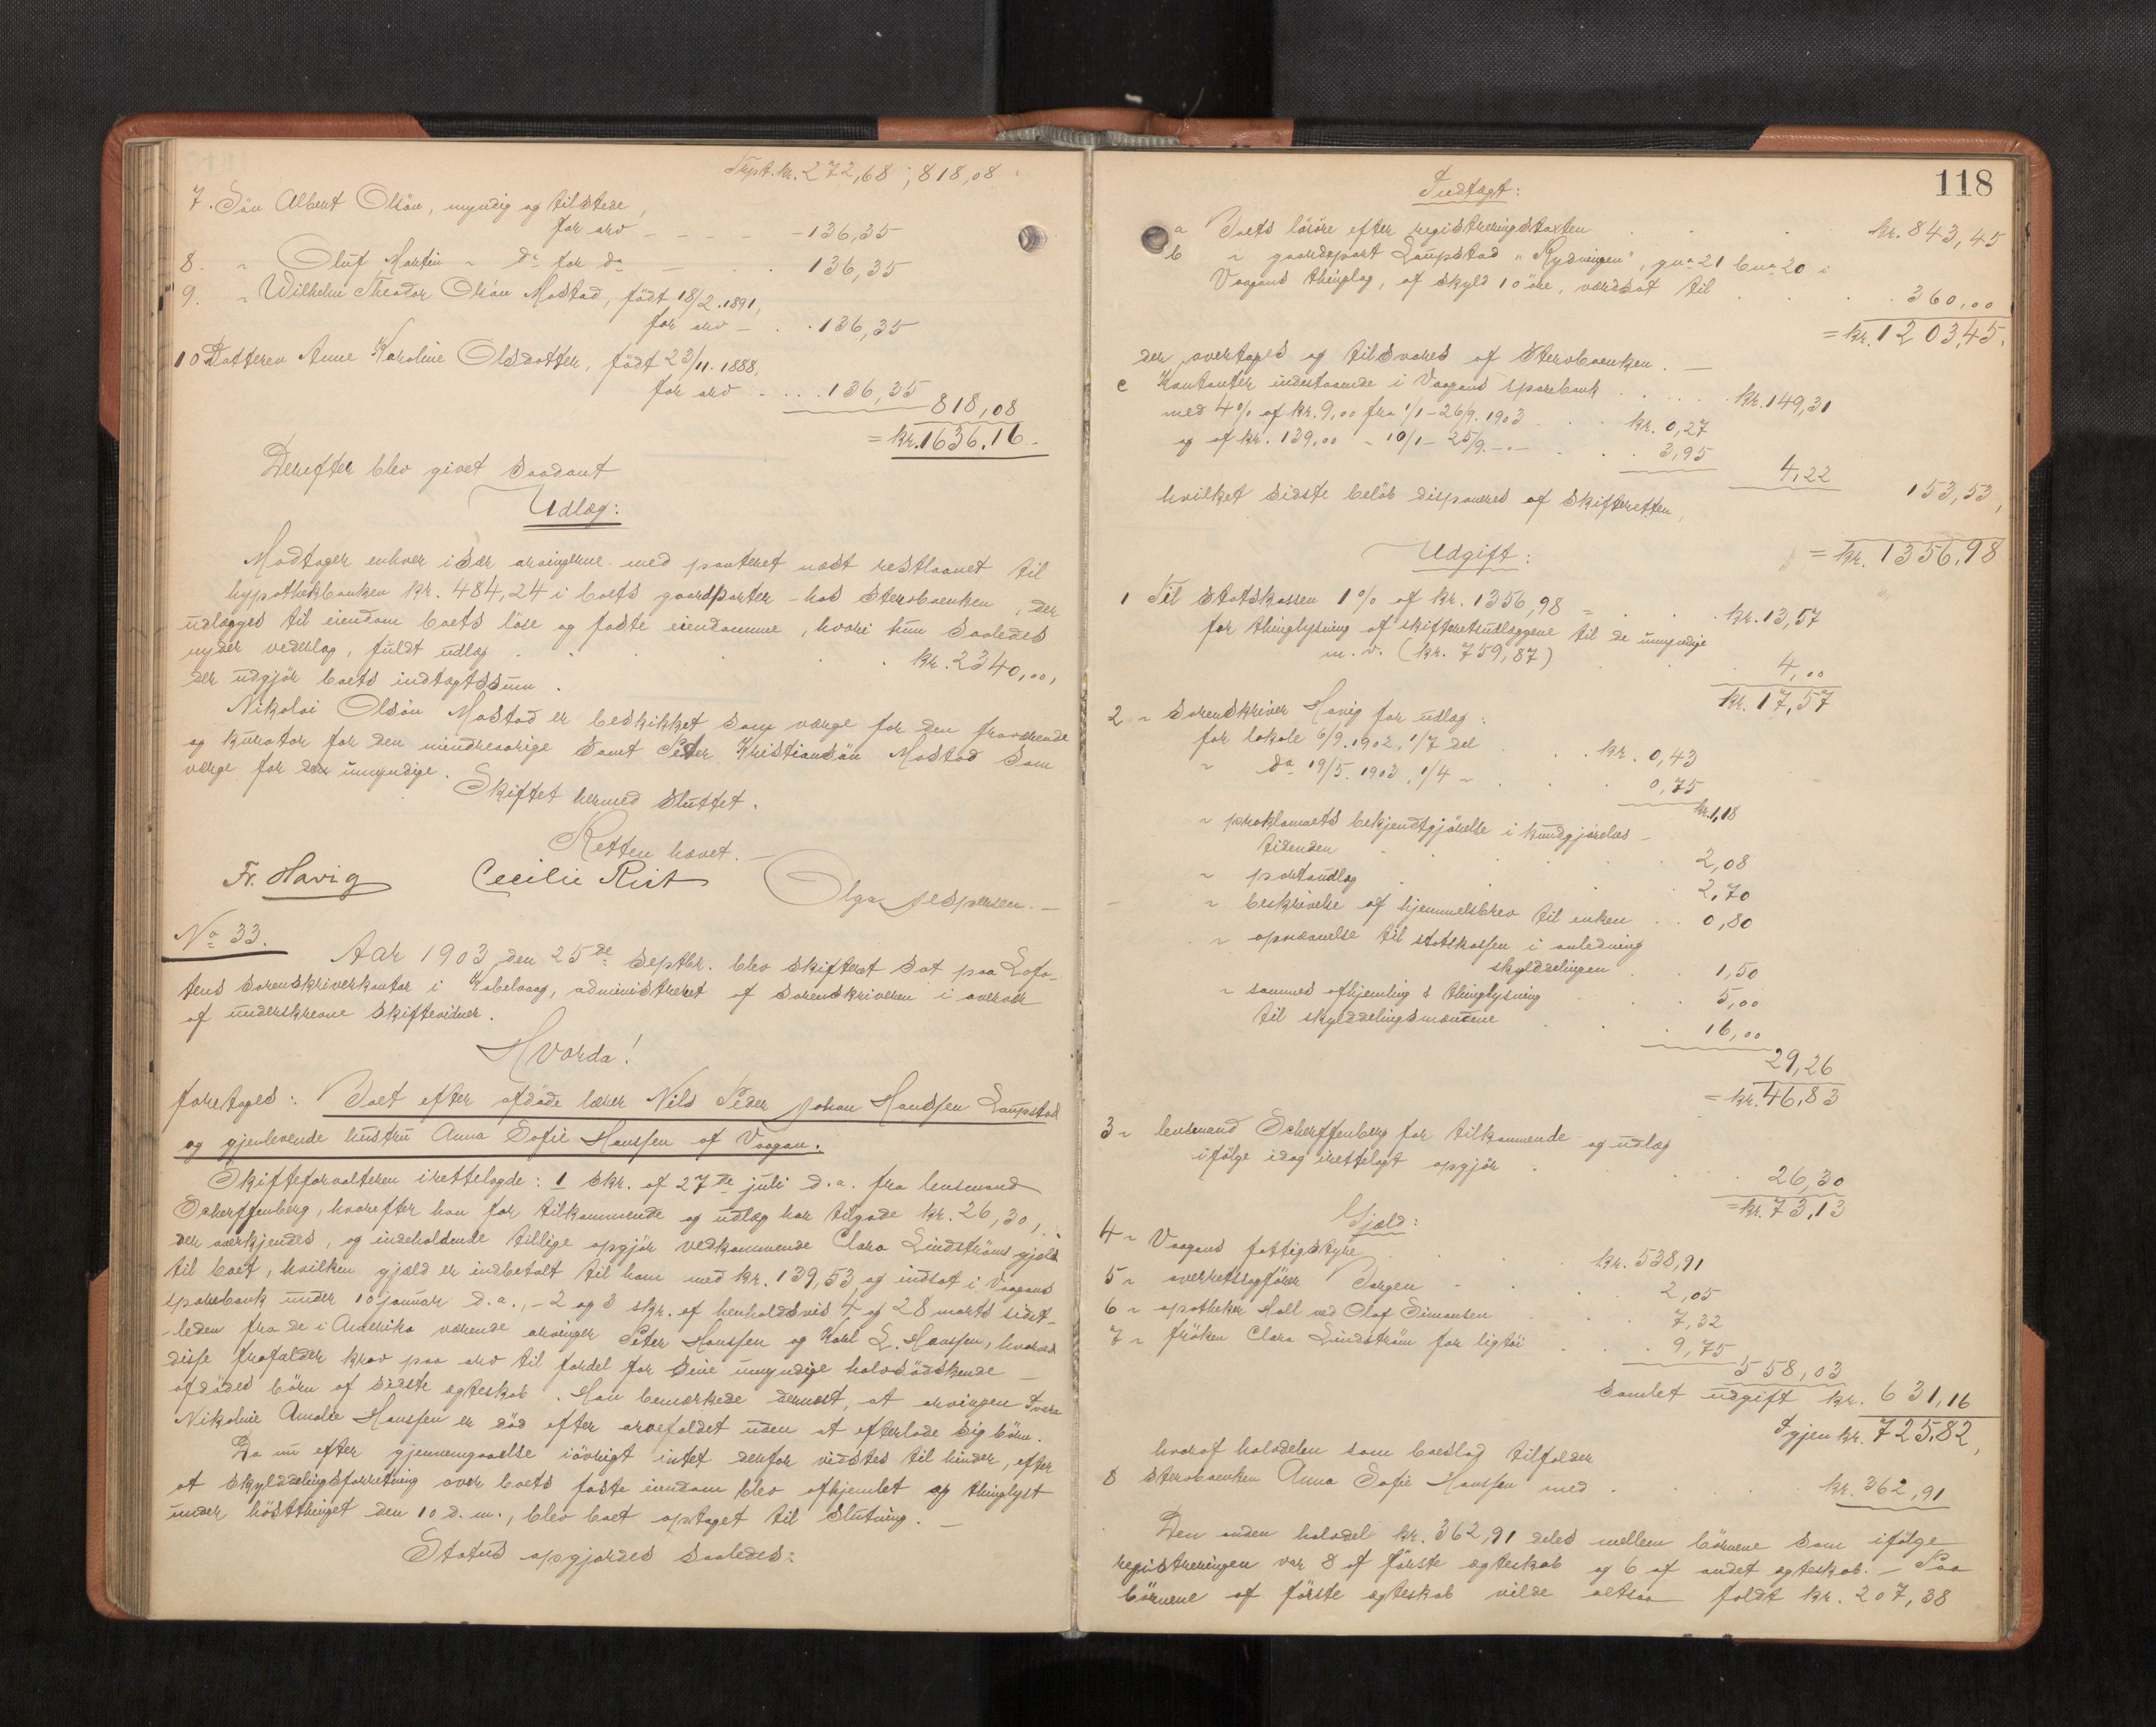 Trspt. kr. 272,68; 818,08
7. Sön Albert Olsön, myndig og tilstede,
for arv - - - - - 136,35
8. " Oluf Martin - do for do - . . 136,35
9. " Wilhelm Theodor Olsön Mostad, född 18/2. 1891,
for arv - . . 136,35
10 Datteren Anne Karoline Olsdatter, född 23/11. 1888,
for arv . . . . 136,35
818,08
= kr. 1636,16.
Derefter blev givet saadant
Udlæg:
Modtager enhver især arvingerne med panteret næst restlaanet til
hypothekbanken kr. 484,24 i boets gaardparter hos sterboenken, der
udlægges til eiendom boets löse og faste eiendomme, hvori hun saaledes
nyder vederlag, fuldt udlæg . . . . kr. 2340,00,
der udgjör boets indtægtssum.
Nikolai Olsön Mostad er beskikket som værge for den fraværende
og kurator for den mindreaarige samt Peder Kristiansön Mostad som
værge for den umyndige.
Skiftet hermed sluttet.
Retten hævet. -
Fr. Havig Cecilie Rist Olga Jespersen. -
No 33.
Aar 1903 den 25de septbr. blev skifteret sat paa Lofo-
tens sorenskriverkontor i Kabelvaag, administreret af sorenskriveren i overvær
af underskrevne skiftevidner.
Hvorda!
foretoges: Boet efter afdöde lærer Nils Peder Johan Hanssen Laupstad
og gjenlevende hustru Anna Sofie Hanssen af Vaagan.
Skifteforvalteren irettelagde: 1 skr. af 27de juli d. a. fra lensmand
Scherffenberg, hvorefter han for tilkommende og udlæg har tilgode kr. 26,30,
der anerkjendes, og indeholdende tillige opgjör vedkommende Clara Lindströms gjæld
til boet, hvilken gjæld er indbetalt til ham med kr. 139,53 og indsat i Vaagans
sparebank under 10 januar d. a., - 2 og 3 skr. af henholdsvis 4 og 28 marts sidst-
leden fra de i Amerika værende arvinger Peter Hanssen og Karl L. Hanssen, hvorved
disse frafalder krav paa arv til fordel for sine umyndige halvsödskende -
afdödes börn af sidste ægteskab. Man bemærkede dernæst, at arvingen Tvara
Nikoline Amalie Hanssen er död efter arvefaldet uden at efterlade sig börn.
Da nu efter gjennemgaaelse iövrigt intet derfor vidstes til hinder, efter
at skylddelingsforretning over boets faste eiendom blev afhjemlet og thinglyst
under höstthinget den 10 d. m., blev boet optaget til slutning. -
Status opgjordes saaledes:
118
Indtægt:
a Boets lösöre efter registreringstaxten . . . kr. 843,45
b " gaardepart Laupstad "Rydningen", gno 21 bno 20 i
Vaagans thinglag, af skyld 10 öre, værdsat til . . . 360,00
= kr. 1203,45.
der overtages og tilsvares af sterboenken. -
c Kontanter indestaaende i Vaagans sparebank . . . . . kr. 149,31
med 4% af kr. 9,00 fra 1/1 - 26/9. 1903 . . . kr. 0,27
og af kr. 139,00 - 10/1 - 25/9. - - . . . 3,95
4,22
153,53,
hvilket sidste belöb disponeres af skifteretten,
= kr. 1356,98
Udgift:
1 Til Statskassen 1% af kr. 1356,98 = . . . kr. 13,57
for thinglysning af skifteretsudlæggene til de umyndige
m. v. (kr. 759,87) . . 4,00
kr. 17,57
2 " Sorenskriver Havig for udlæg:
for lokale 6/9. 1902, 1/7 del . . kr. 0,43
" do 19/5. 1903, 1/4 " . . . 0,75
kr. 1,18
" proklamaets bekjendtgjörelse i kundgjörelses-
tidenden . . . . . 2,08
" portoudlæg . . . . 2,70
" beskrivelse af hjemmelsbrev til enken . . 0,80
" opnævnelse til statskassen i anledning
skylddelingen . . 1,50
" sammes afhjemling & thinglysning . . . 5,00
til skylddelingsmændene . . . 16,00
29,26
= kr. 46,83
3 " lensmand Scherffenberg for tilkommende og udlæg
ifölge idag irettelagt opgjör . . . . 26,30
= kr. 73,13
Gjæld:
4 " Vaagans fattigstyre . . . kr. 538,91
5 " overretssagförer Borgen - . . 2,05
6 " apotheker Moll ved Olaf Simonsen . . . 7,32
7 " fröken Clara Lindström for ligtöi . . . 9,75
558,03
Samlet udgift kr. 631,16
Igjen kr. 725,82,
hvoraf halvdelen som boeslod tilfalder
8 sterboenken Anna Sofie Hanssen med . . . kr. 362,91
Den anden halvdel kr. 362,91 deles mellem börnene som ifölge
registreringen var 8 af förste ægteskab og 6 af andet ægteskab. - Paa
börnene af förste ægteskab vilde altsaa faldt kr. 207,38